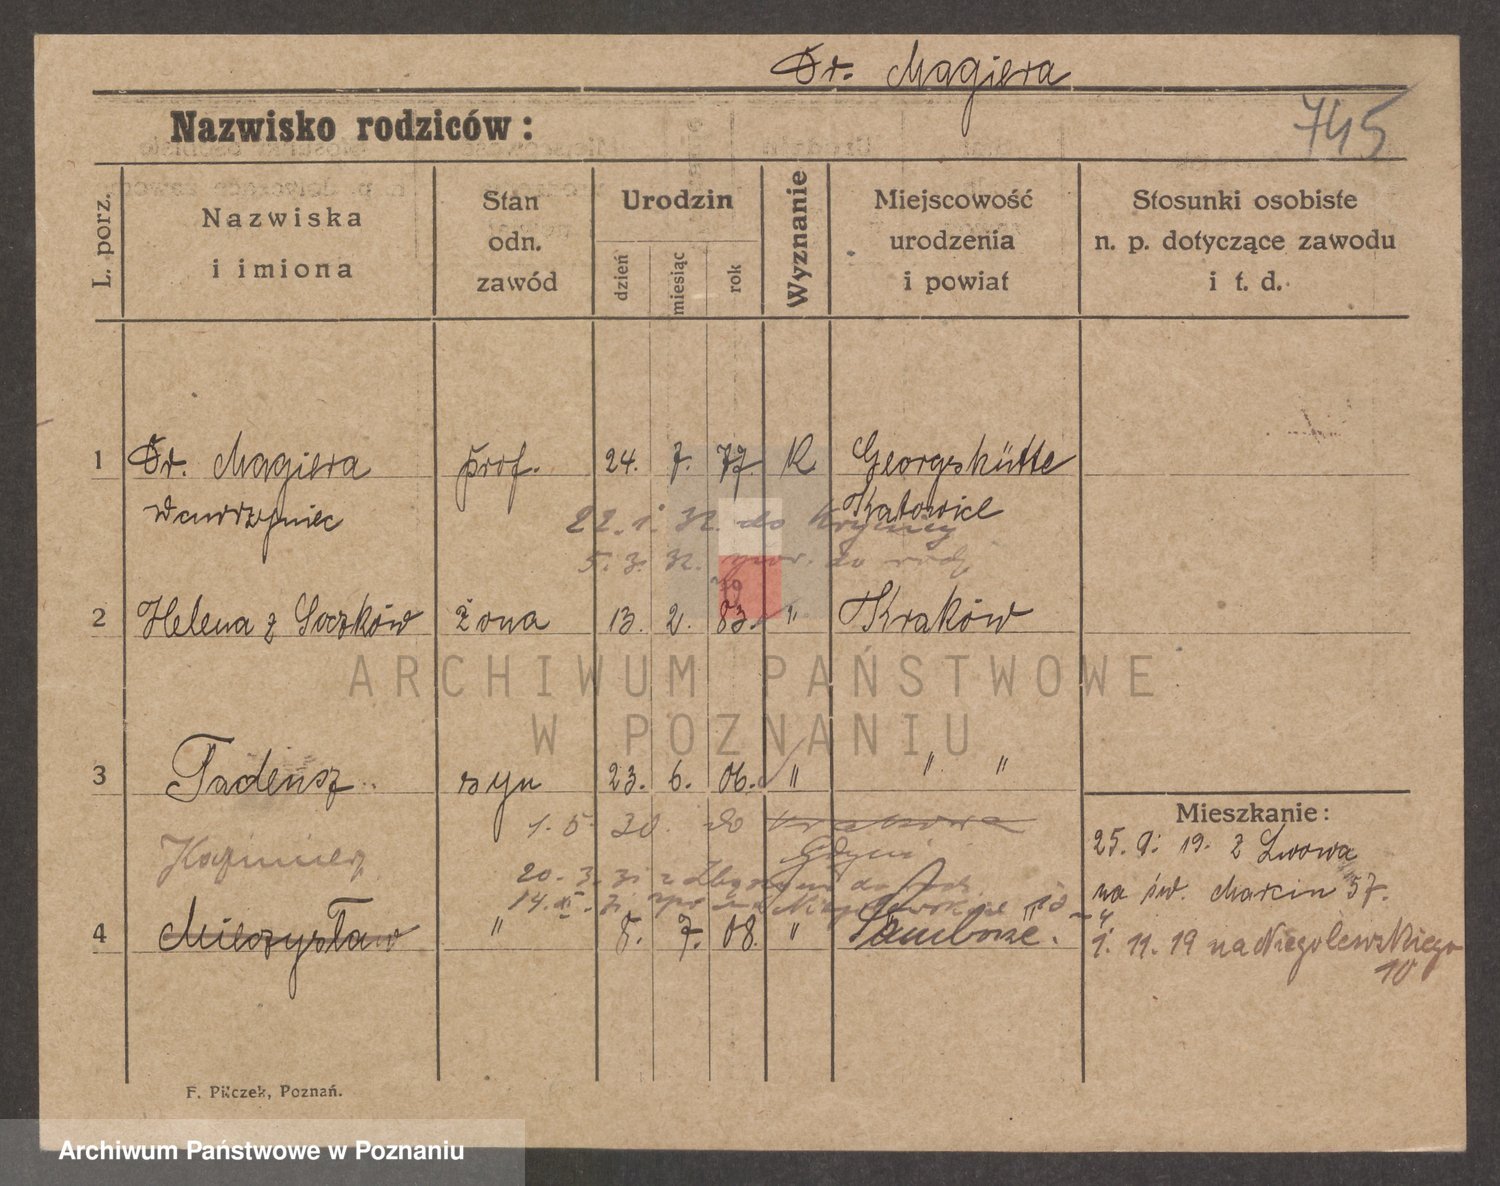 Dr. Magiera
745
Nazwisko rodziców:
L. porz.
Nazwiska
i imiona
Stan
odn.
zawód
Urodzin
dzień
miesiąc
rok
Wyznanie
Miejscowość
urodzenia
i powiat
Stosunki osobiste
n. p. dotyczące zawodu
i t. d.
1 Dr. Magiera prof. 24. 7. 77. K Georgshütte
Wawrzyniec Katowice
22. 1. 32. do Krynicy
5. 3. 32. do
79
2 Helena z Soczków żona 13. 2. 83. " Kraków
ARCHIWUM PAŃSTWOWE
W POZNANIU
3 Tadeusz syn 23. 6. 06. " " "
1. 5. 30. do Krakowa
Gdyni
Kazimierz
20. 3. 31 z do
14.
4 Mieczysław " 8. 7. 08. "
Mieszkanie:
25. 9. 19. z Lwowa
na św. Marcin 57.
1. 11. 19 na Niegolewskiego
10
F. Pilczek, Poznań.
Archiwum Państwowe w Poznaniu